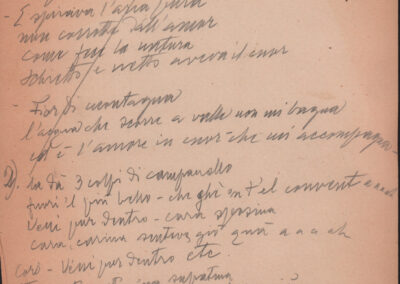 - E spirava l'aria pura
non corrotta dall'amor
come fusi la natura
schietto e netto aveva il cuor
- Fior di montagna
l'acqua che scorre a valle non mi bagna
ed è l'amore in cuor che mi accompagna -
La dà 3 colpi di campanello
fuori il più bello - che ghè en t'el convent a a a ah
Veni pur dentro - cara sposina
cara carina sentive giò quà a a a ah
Coro - Veni pur dentro etc